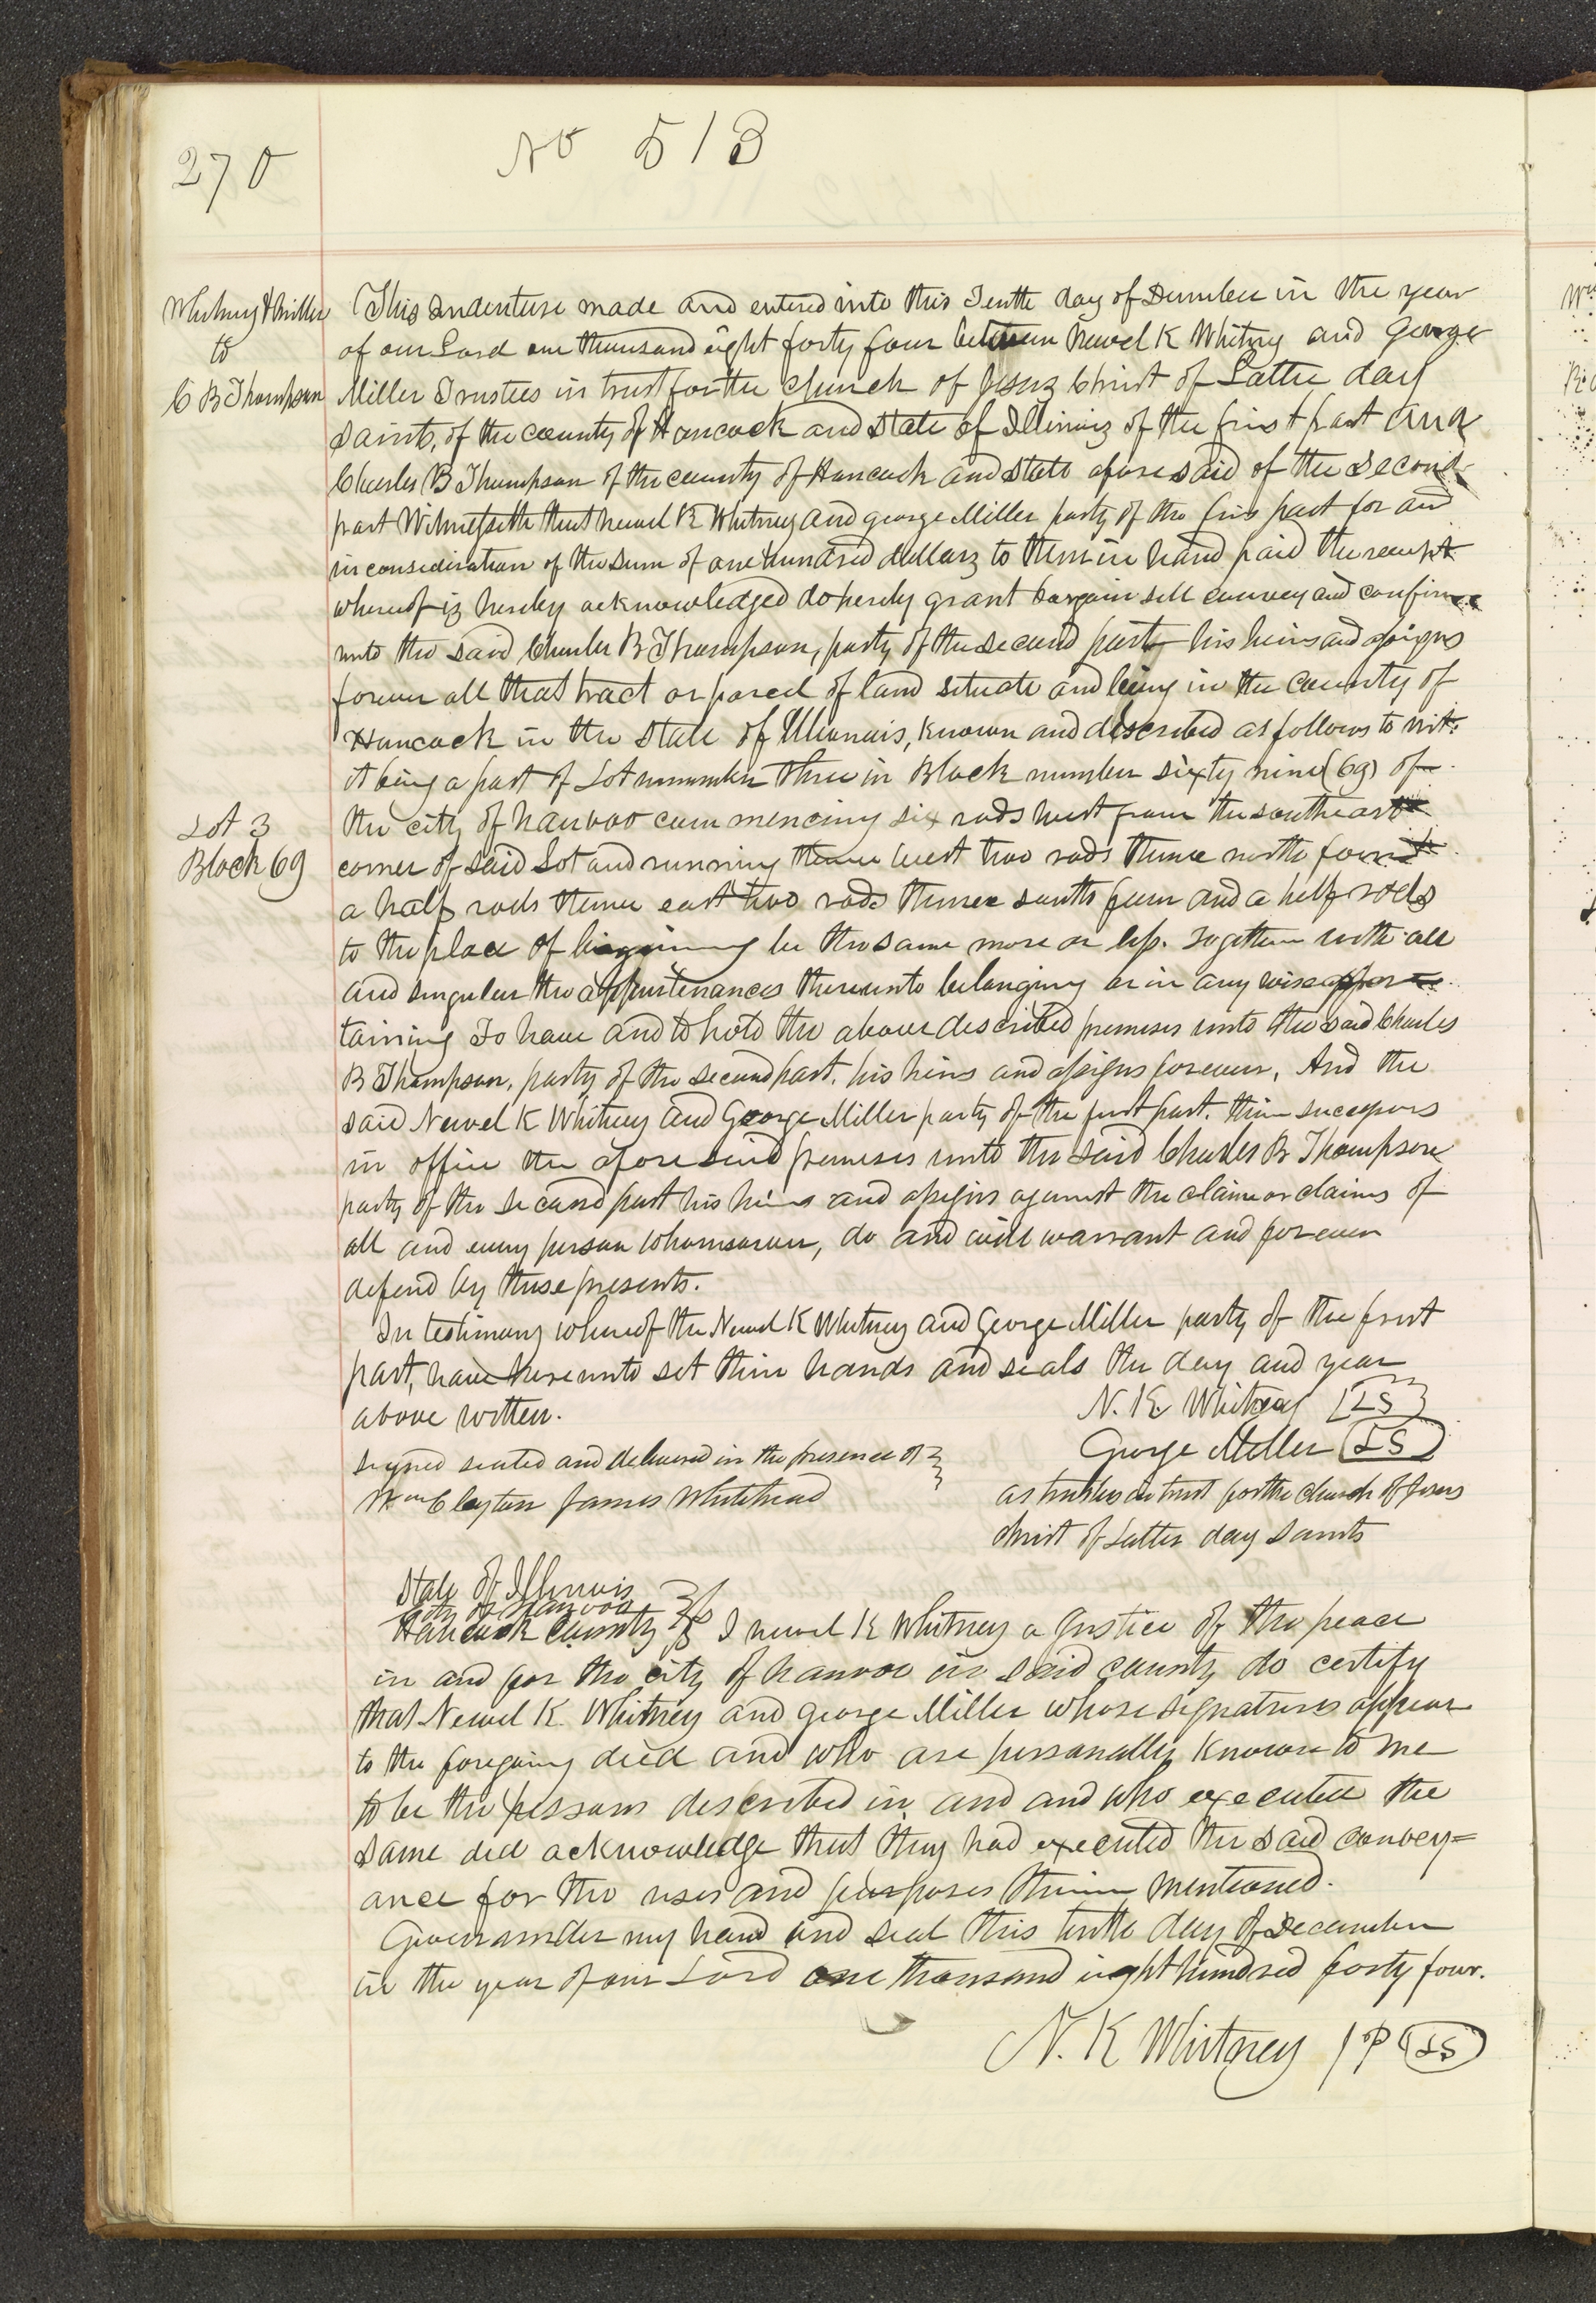 270
No 513
Whitney & Miller
to
C B Thompson
This indenture made and entered into this Tenth day of December in the year
of our Lord one thousand eight forty four between Newel K Whitney and George
Miller Trustees in trust for the church of Jesus Christ of Latter day
Saints, of the county of Hancock and State of Illinois of the first part and
Charles B Thompson of the county of Hancock and State aforesaid of the second
part Witnesseth that Newel K Whitney and George Miller party of the firs part for and
in consideration of the sum of one hundred dollars to them in hand paid the receipt
whereof is hereby acknowledged do hereby grant bargain sell convey and confirm
unto the said Charles B Thompson, party of the second part his heirs and assigns
forever all that tract or parcel of land situate and being in the County of
Hancock in the State of Illionais, known and described as follows to wit.
it being a part of Lot nummber three in Block number sixty nine (69) of
Lot 3
Block 69
the city of nauvoo commencing six rods west from the southeast
corner of said Lot and running thence west two rods thence north four &
a half rods thence east two rods thence south four and a half rods
to the place of beginning be the same more or less. Together with all
and singular the appurtenances thereunto belonging or in any wise apper
taining To have and to hold the above described premises unto the said Charles
B Thompson, party of the second part. his heirs and assigns forever, And the
said Newel K Whitney and George Miller party of the first part. their successors
in office the aforesaid premises unto the said Charles B Thompson
party of the second part his heirs and assigns against the claim or claims of
all and every person whomsoever, do and will warrant and forever
defend by these presents.
In testimony whereof the Newel K Whitney and George Miller party of the first
part, have hereunto set their hands and seals the day and year
above written.
N. K Whitney [LS]
George Miller (LS)
as trustees in trust for the church of Jesus
christ of Latter day Saints
Signed sealed and delivered in the presence of
Wm Clayton James Whitehead
State of Illinois
City of Nauvoo
Hancock County } ss I newel K Whitney a Justice of the peace
in and for the city of nauvoo in said county do certify
that Newel K. Whitney and George Miller whose signatures appear
to the foregoing deed and who are personally known to me
to be the persons described in and and who executed the
same did acknowledge that they had executed the said convey=
ance for the uses and purposes therein mentioned.
Given under my hand and seal this tenth day of December
in the year of our Lord one thousand eight hundred forty four.
N. K Whitney JP (LS)